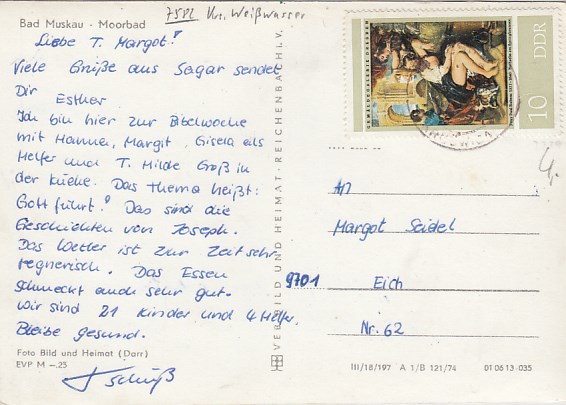 Bad Muskau - Moorbad
7581 Krs. Weißwasser
Liebe T. Margot!
Viele Grüße aus Sagar sendet
Dir Esther
Ich bin hier zur Bibelwoche
mit Hanna, Margit, Gisela als
Helfer und T. Hilde Groß in
der Küche. Das Thema heißt:
Gott führt! Das sind die
Geschichten von Joseph.
Das Wetter ist zur Zeit sehr
regnerisch. Das Essen
schmeckt auch sehr gut.
Wir sind 21 Kinder und 4 Helfer.
Bleibe gesund.
Tschüß
Foto Bild und Heimat (Darr)
EVP M -.25
VERLAG BILD UND HEIMAT · REICHENBACH I. V.
DDR
10
4,-
An
Margot Seidel
9701 Eich
Nr. 62
III/18/197 A 1/B 121/74 01 06 13 035